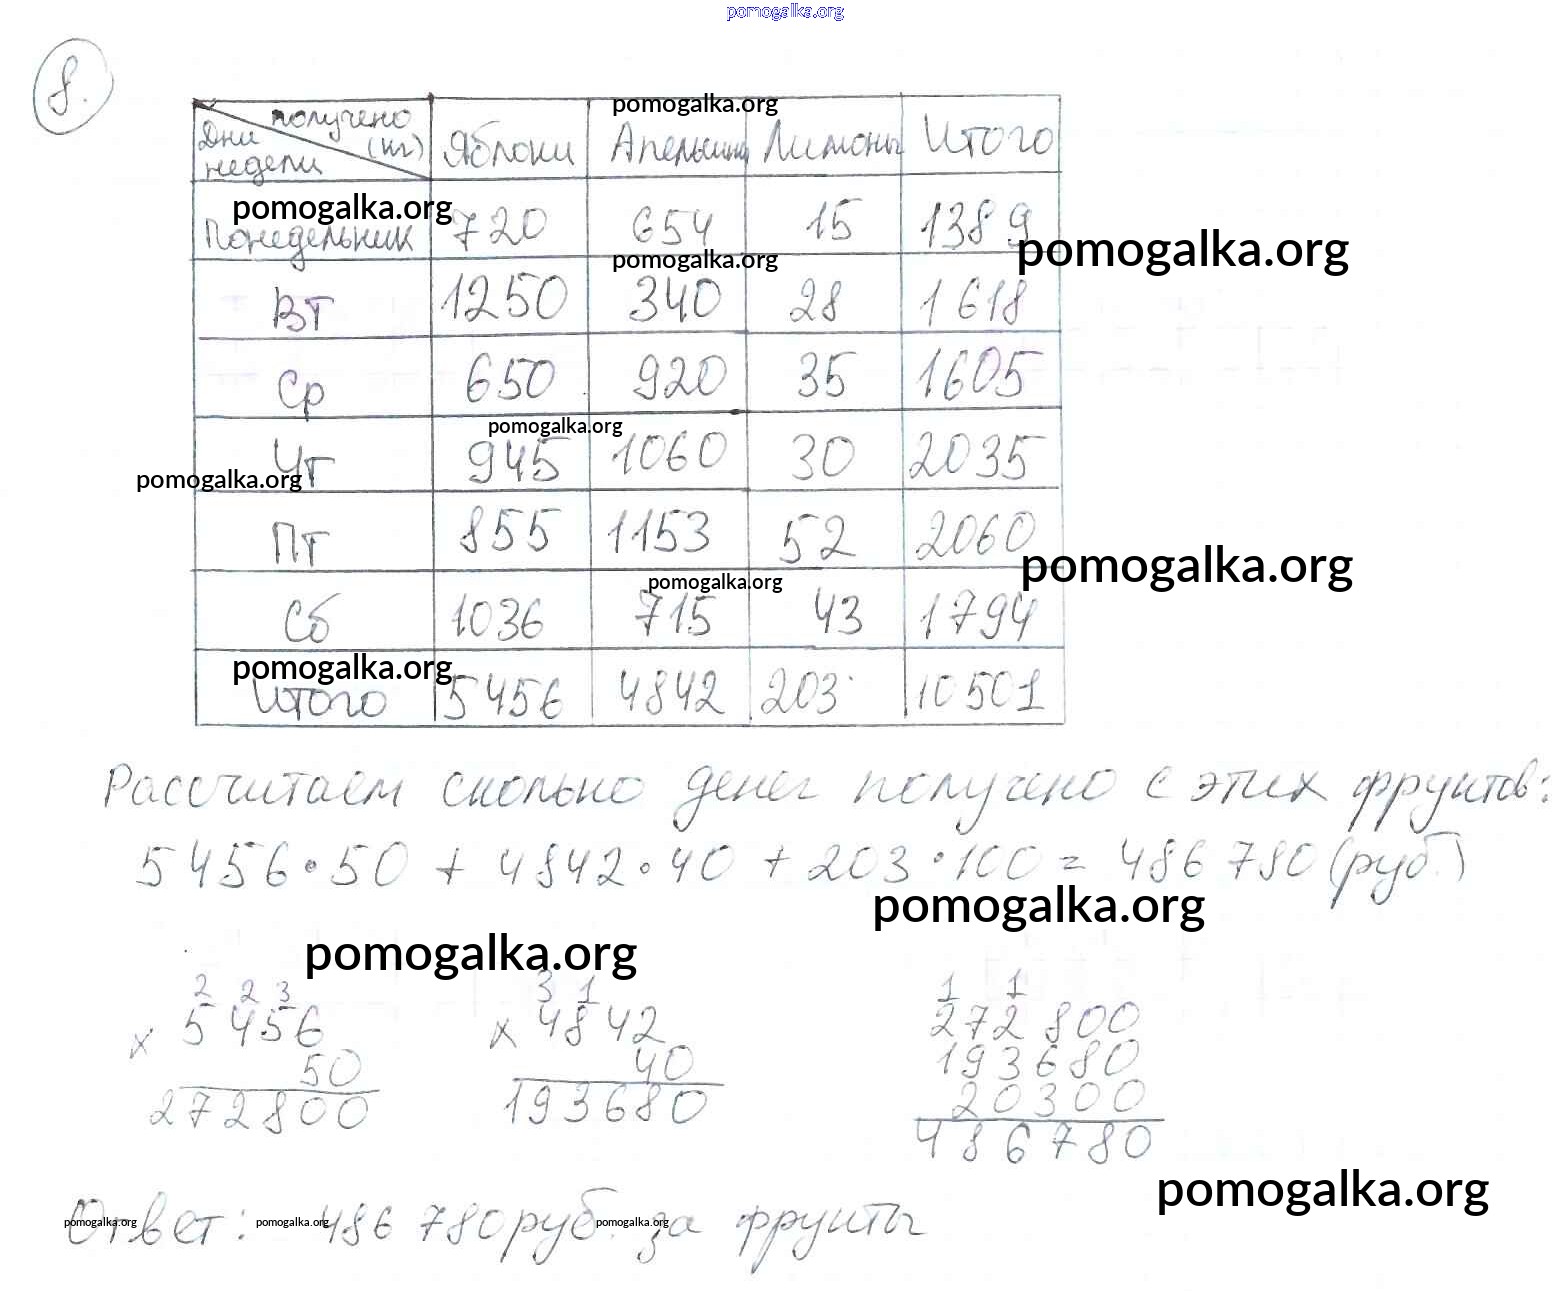 pomogalka.org
8.
получено (кг) Дни недели Яблоки Апельсины Лимоны Итого
pomogalka.org
Понедельник 720 654 15 1389
pomogalka.org
pomogalka.org
pomogalka.org
Вт 1250 340 28 1618
Ср 650 920 35 1605
pomogalka.org
Чт 945 1060 30 2035
pomogalka.org
Пт 855 1153 52 2060
pomogalka.org
pomogalka.org
Сб 1036 715 43 1794
pomogalka.org
Итого 5456 4842 203 10501
Рассчитаем сколько денег получено с этих фруктов:
5456·50 + 4842·40 + 203·100 = 486 780 (руб.)
pomogalka.org
pomogalka.org
2 2 3 3 1 1 1
× 5456 × 4842 272 800
50 40 193680
272800 193680 20300
486780
pomogalka.org
Ответ: 486 780 руб. за фрукты
pomogalka.org pomogalka.org pomogalka.org